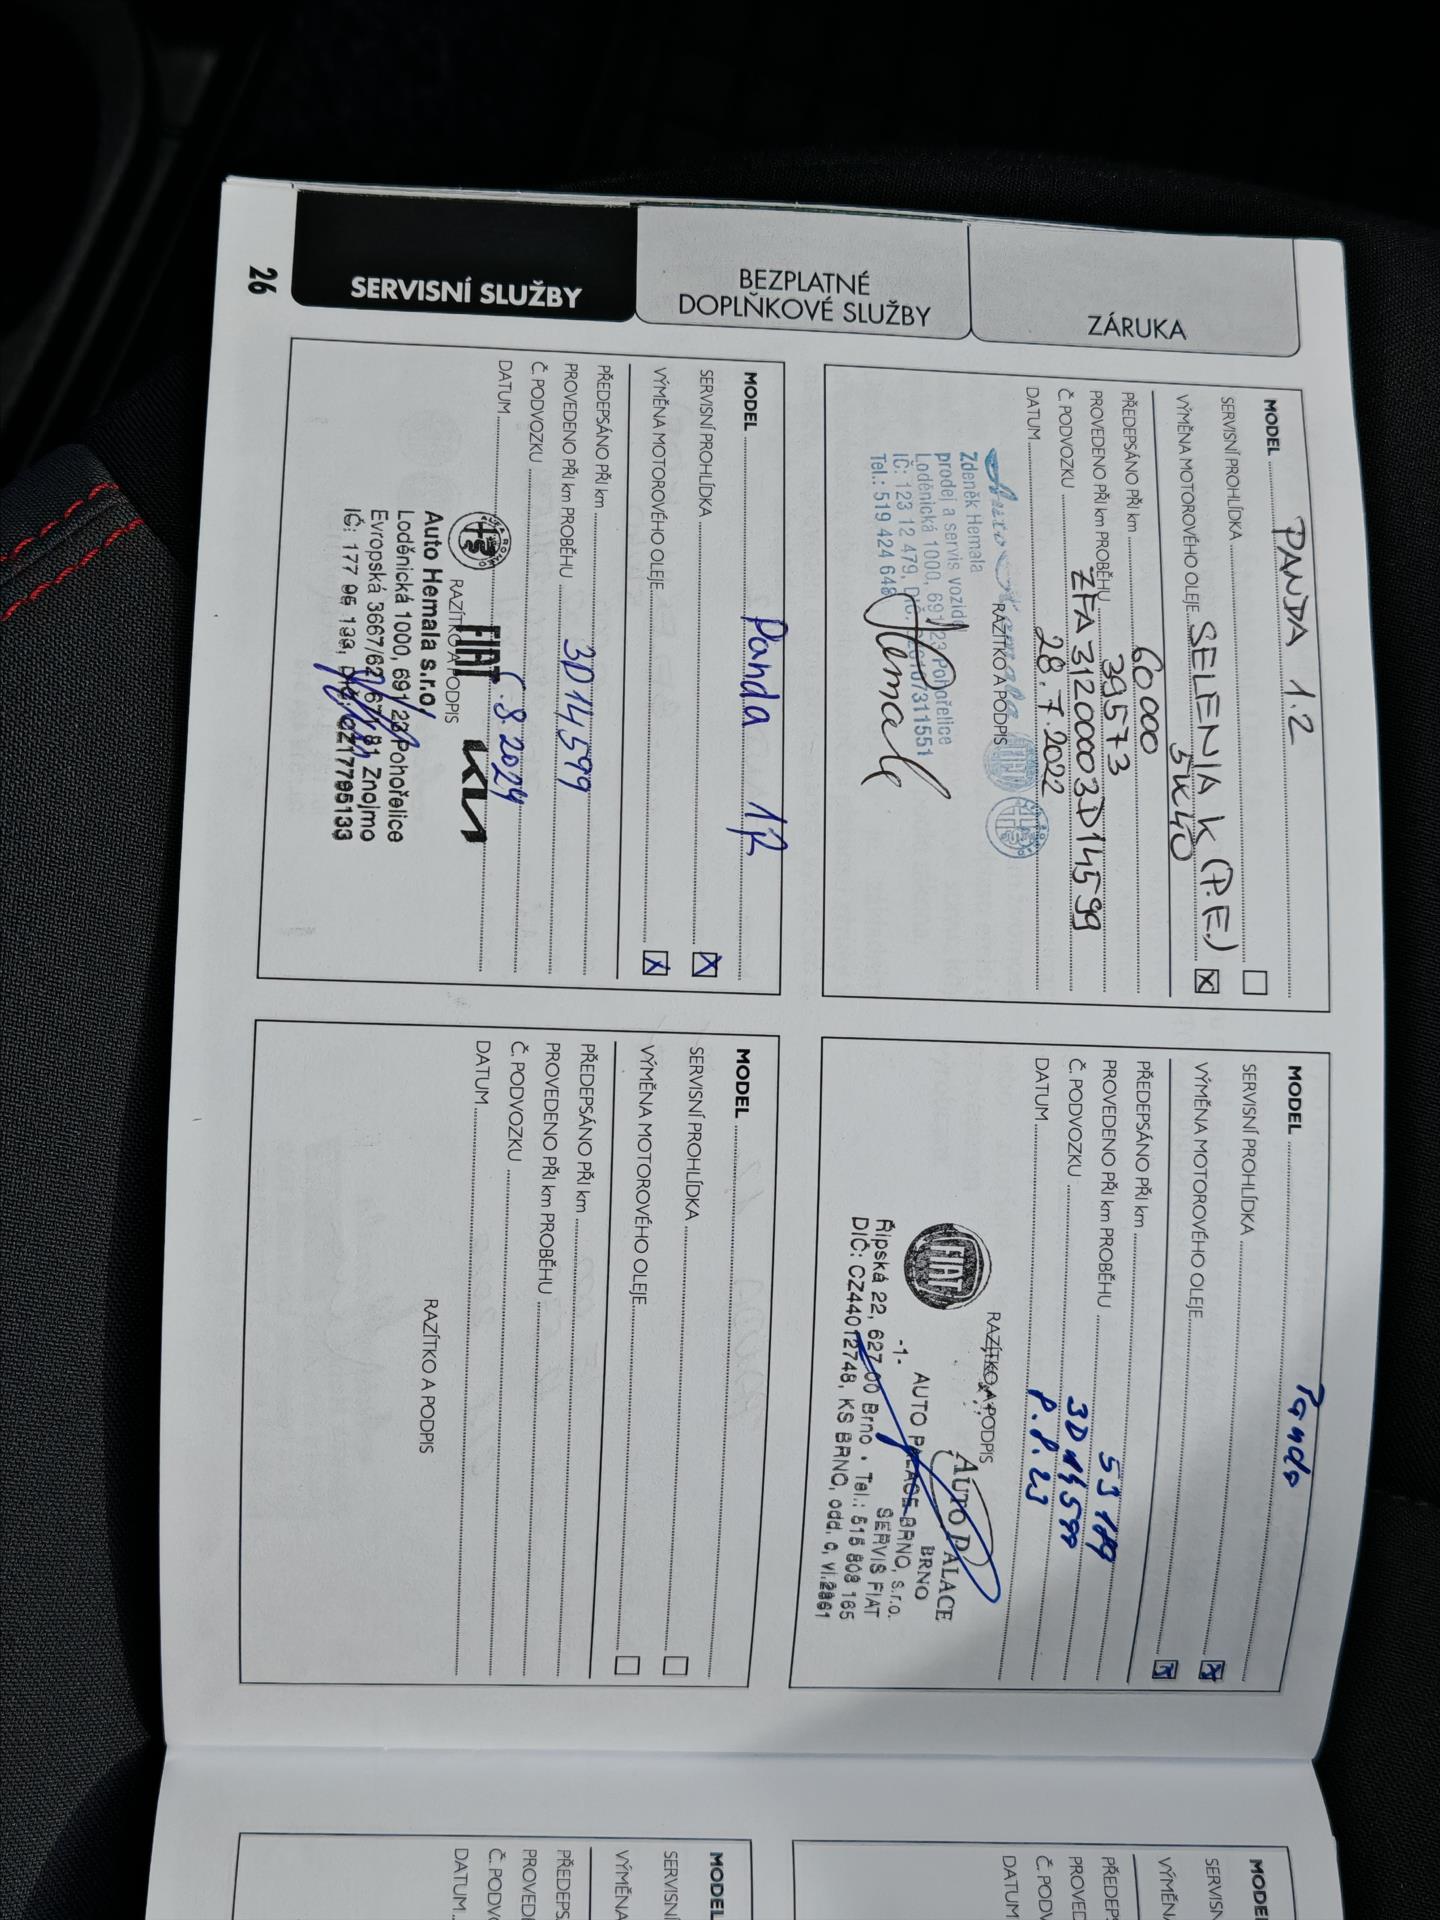 SERVISNÍ SLUŽBY
BEZPLATNÉ
DOPLŇKOVÉ SLUŽBY
ZÁRUKA
26
MODEL PANDA 1.2
SERVISNÍ PROHLÍDKA
VÝMĚNA MOTOROVÉHO OLEJE SELENIA K (P.E.)
5W40
PŘEDEPSÁNO PŘI km 60000
PROVEDENO PŘI km PROBĚHU 39573
Č. PODVOZKU ZFA3120003D14599
DATUM 28.7.2022
RAZÍTKO A PODPIS
Zdeněk Hemala
prodej a servis vozidel
Loděnická 1000, 691 23 Pohořelice
IČ: 123 12 479, DIČ:
Tel.: 519 424 648
MODEL Panda
SERVISNÍ PROHLÍDKA
VÝMĚNA MOTOROVÉHO OLEJE
PŘEDEPSÁNO PŘI km
PROVEDENO PŘI km PROBĚHU 53189
Č. PODVOZKU 3D14599
DATUM 8.8.23
RAZÍTKO A PODPIS
FIAT
AUTO PALACE
BRNO
-1- AUTO PALACE BRNO, s.r.o.
SERVIS FIAT
Řipská 22, 627 00 Brno • Tel.: 515 803 165
DIČ: CZ44012748, KS BRNO, odd. C, vl.
MODEL Panda 1,2
SERVISNÍ PROHLÍDKA
VÝMĚNA MOTOROVÉHO OLEJE
PŘEDEPSÁNO PŘI km
PROVEDENO PŘI km PROBĚHU 3D14599
Č. PODVOZKU
DATUM 6.8.2024
RAZÍTKO A PODPIS
FIAT
Auto Hemala s.r.o.
Loděnická 1000, 691 23 Pohořelice
Evropská 3667/62, 671 81 Znojmo
IČ: 177 95 133, DIČ: CZ17795133
MODEL
SERVISNÍ PROHLÍDKA
VÝMĚNA MOTOROVÉHO OLEJE
PŘEDEPSÁNO PŘI km
PROVEDENO PŘI km PROBĚHU
Č. PODVOZKU
DATUM
RAZÍTKO A PODPIS
MODEL
SERVISN
VÝMĚNA
PŘEDEPS
PROVED
Č. PODV
DATUM
MODEL
SERVISNÍ
VÝMĚNA
PŘEDEPS
PROVEDE
Č. PODVO
DATUM